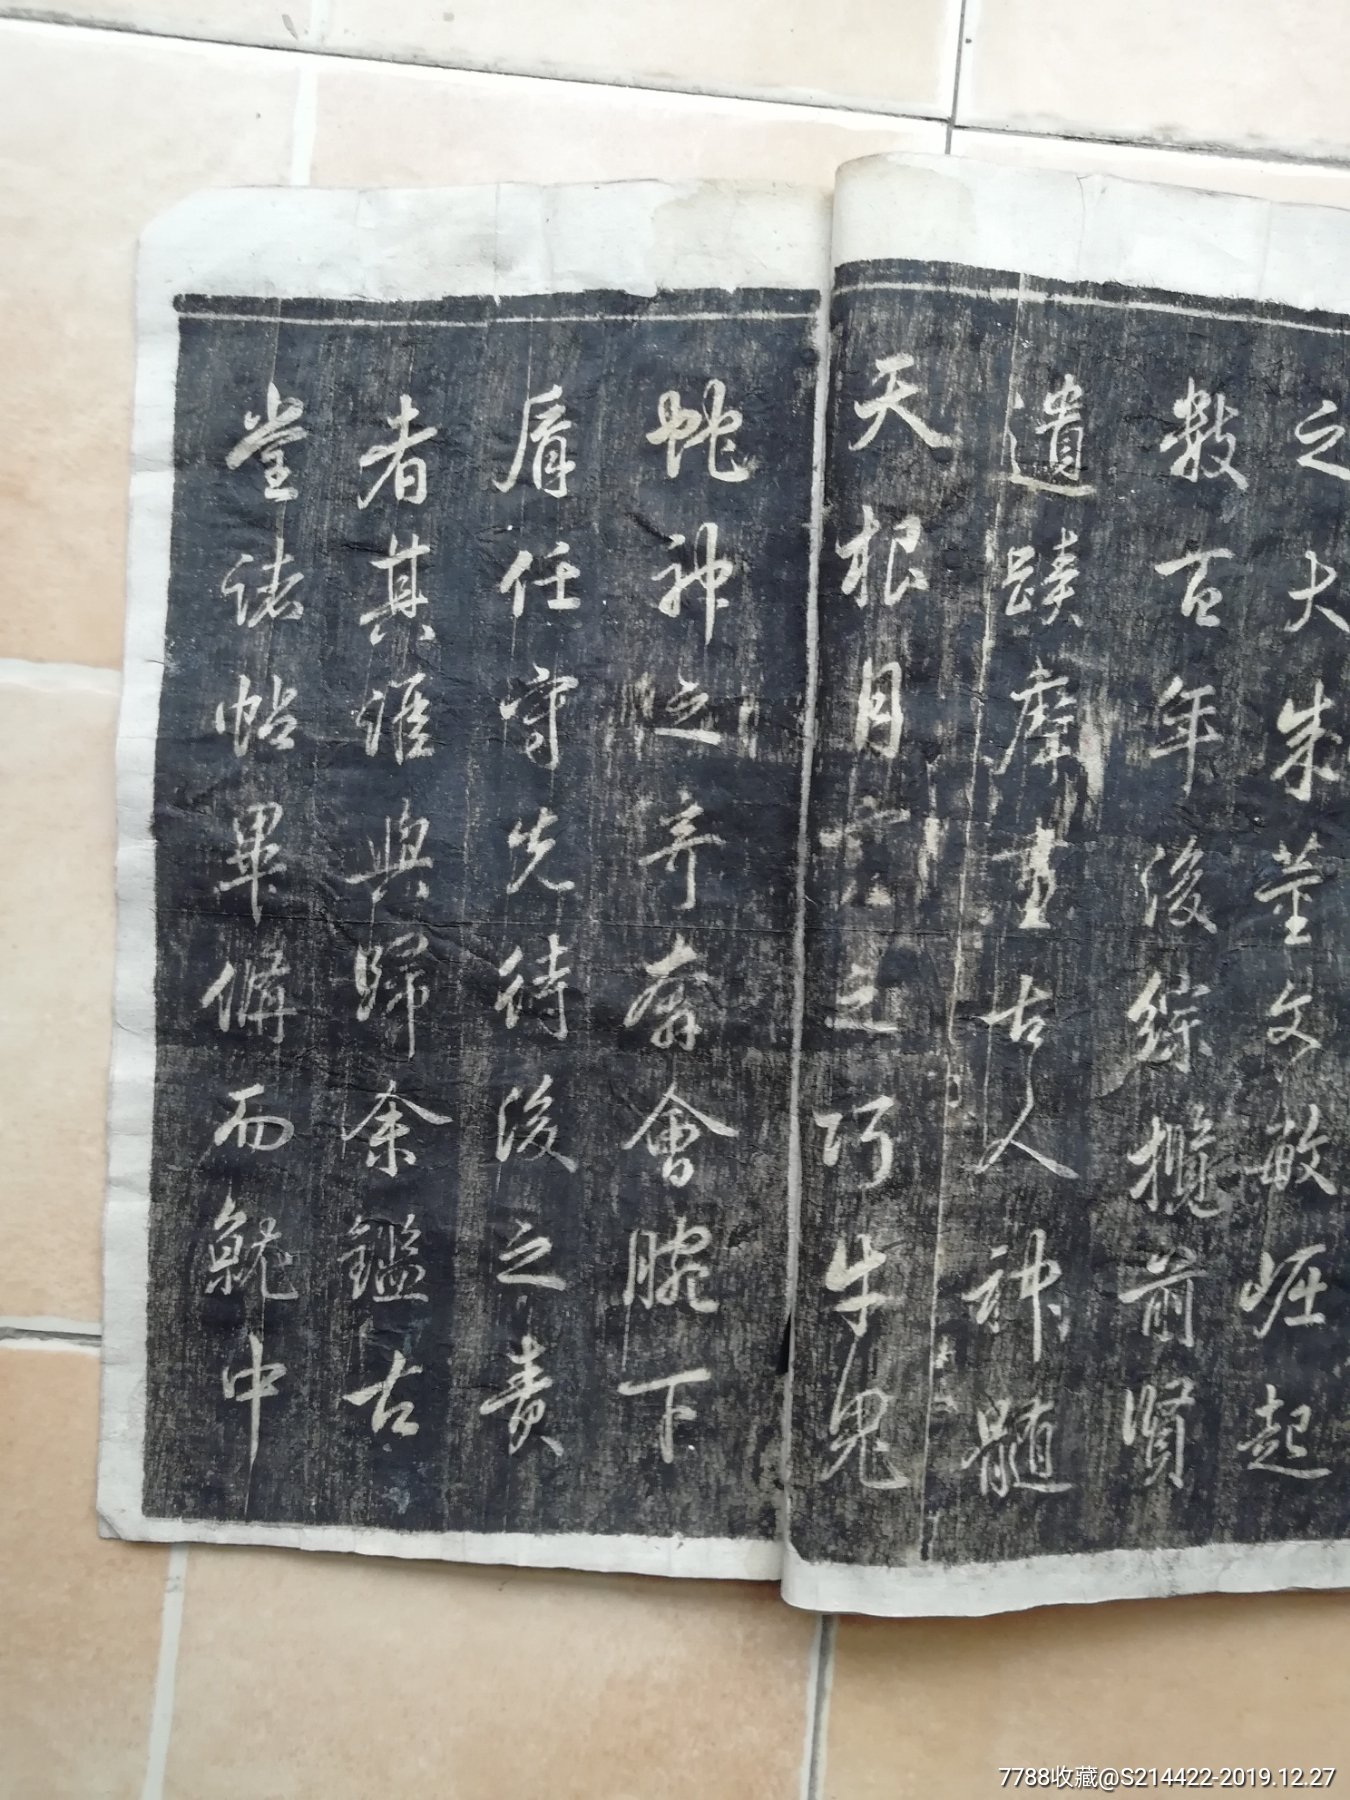 之大朱董文敏崛起
數百年後綜攬前賢
遺蹟摩畫古人神髓
天根月穴之巧牛鬼
蛇神之奇奔會腕下
肩任守先待後之責
者其誰與歸余鑑古
堂诸帖畢備而就中
7788收藏@S214422-2019.12.27